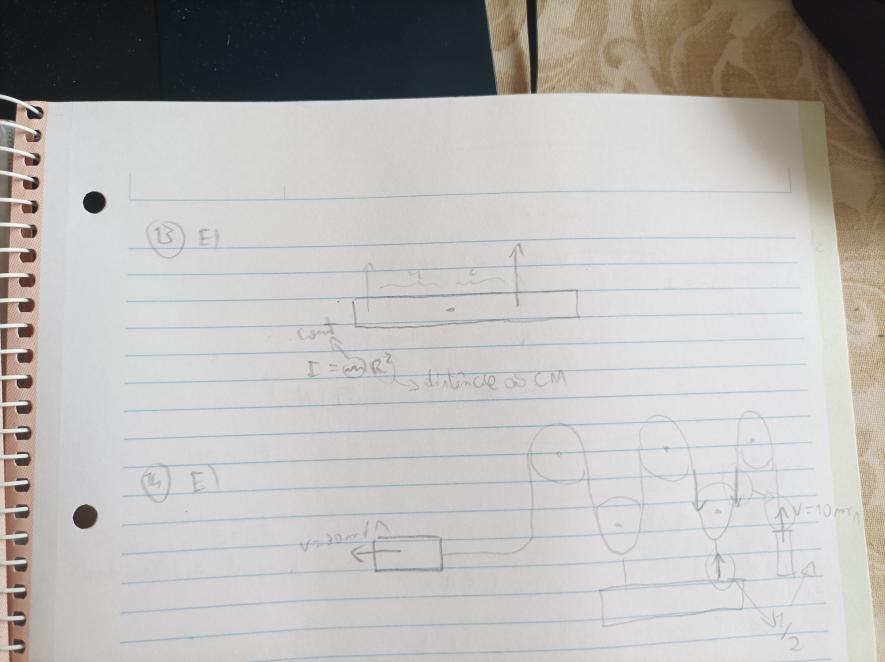 13 E)
const
I = mR²
distância ao CM
14 E)
V=10m/s
V=30m/s
M/2